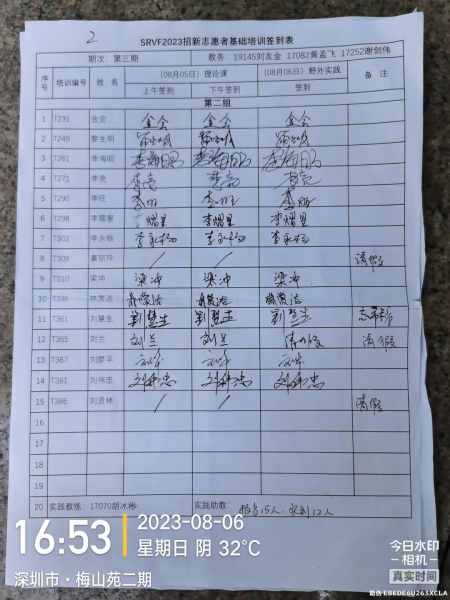 2
SRVF2023招新志愿者基础培训签到表
期次：第三期 教务：19145刘友金 17082黄孟飞 17252谢剑伟
序号 培训编号 姓名 (08月05日) 理论课 (08月06日) 野外实践 备注
上午签到 下午签到 签到
第二组
1 T231 金会 金会 金会 金会
2 T249 黎生明
3 T261 李海昭
4 T271 李亮 李亮 李亮 李亮
5 T290 李旺 李旺 李旺
6 T298 李熠星 李熠星 李熠星 李熠星
7 T302 李永杨 李永杨 李永杨 李永杨
8 T309 廉丽玲 / / 请假
9 T310 梁冲 梁冲 梁冲 梁冲
10 T336 林赏洁
11 T361 刘慧生 刘慧生 刘慧生 刘慧生
12 T365 刘兰 刘兰 刘兰 请假 请假
13 T367 刘梦平
14 T381 刘伟忠 刘伟忠 刘伟忠 刘伟忠
15 T386 刘贤林 / / 请假
16
17
18
19
20 实践教练：17070胡冰彬 实践助教： 报名15人，实到12人
16:53
2023-08-06
星期日 阴 32℃
深圳市·梅山苑二期
今日水印
相机
真实时间
防伪 EBEDE6U263XCLA